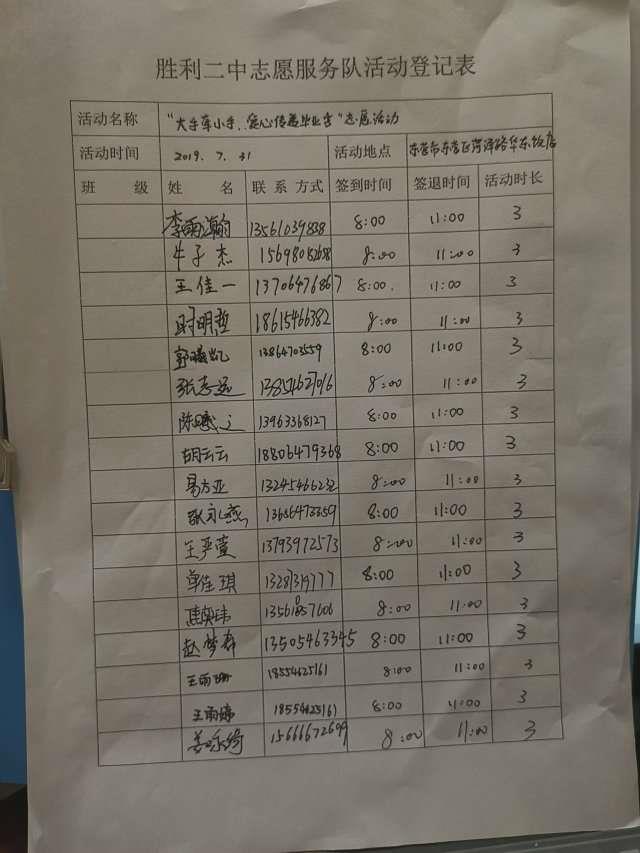 胜利二中志愿服务队活动登记表
活动名称 "大手牵小手,爱心传递毕业季"志愿活动
活动时间 2019. 7. 31 活动地点 东营市东营区菏泽路华东饭店
班 级 姓 名 联系方式 签到时间 签退时间 活动时长
李雨瀚 13561039838 8:00 11:00 3
牛子杰 15698082658 8:00 11:00 3
王佳一 13706476867 8:00. 11:00 3
时明哲 18615466382 8:00 11:00 3
郭曦凯 13864703559 8:00 11:00 3
张志远 13854627016 8:00 11:00 3
陈曦之 13963368127 8:00 11:00 3
胡云云 18806479368 8:00 11:00 3
易方亚 13245466232 8:00 11:00 3
张永燕 13656473359 8:00 11:00 3
王严萱 13793972573 8:00 11:00 3
单佳琪 13287319777 8:00 11:00 3
8:00 11:00 3
赵梦存 13505463345 8:00 11:00 3
王雨珊 18554625161 8:00 11:00 3
王雨婷 18554625161 8:00 11:00 3
姜咏绮 15666672699 8:00 11:00 3